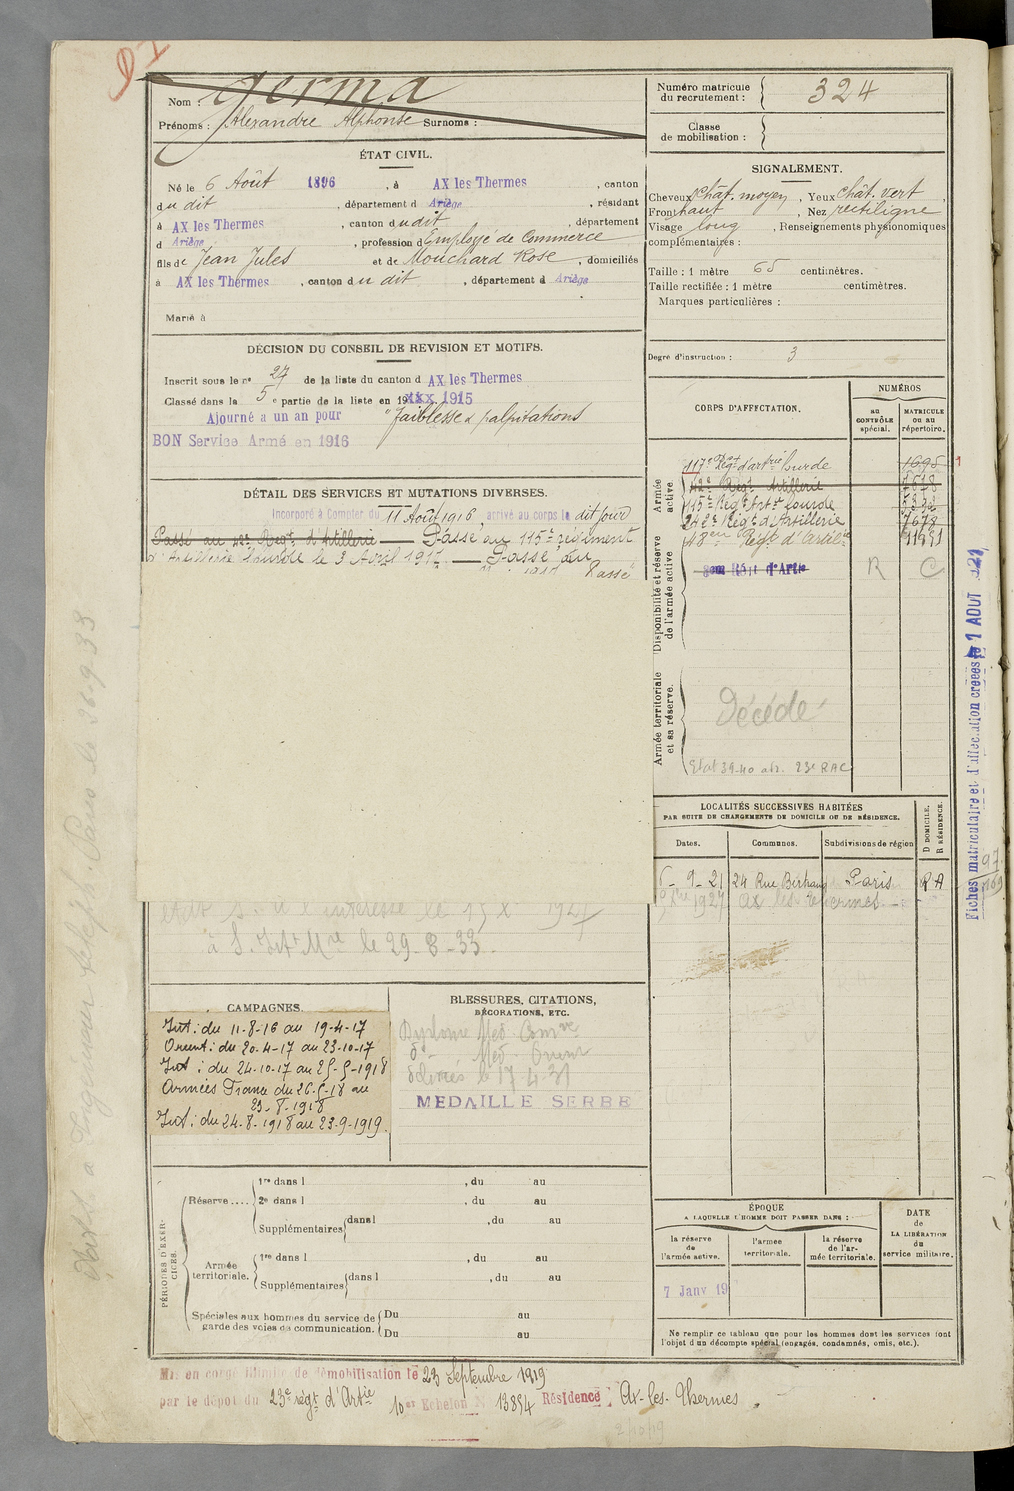 Nom : Germa
Prénoms : Alexandre Alphonse Surnoms :
Numéro matricule du recrutement : 324
Classe de mobilisation :
ÉTAT CIVIL.
Né le 6 Août 1896, à AX les Thermes, canton
du dit, département d Ariège, résidant
à AX les Thermes, canton du dit, département
d Ariège, profession d Employé de Commerce
fils de Jean Jules et de Mouchard Rose, domiciliés
à AX les Thermes, canton du dit, département d Ariège
Marié à
SIGNALEMENT.
Cheveux chât. moyen, Yeux chât. vert,
Front haut, Nez rectiligne
Visage long, Renseignements physionomiques
complémentaires :
Taille : 1 mètre 65 centimètres.
Taille rectifiée : 1 mètre centimètres.
Marques particulières :
Degré d'instruction : 3
DÉCISION DU CONSEIL DE REVISION ET MOTIFS.
Inscrit sous le no 27 de la liste du canton d AX les Thermes
Classé dans la 5e partie de la liste en 1915
Ajourné a un an pour "faiblesse & palpitations
BON Service Armé en 1916
DÉTAIL DES SERVICES ET MUTATIONS DIVERSES.
Incorporé à Compter du 11 Août 1916, arrivé au corps le dit jour
Passé au 42e Regt d'Artillerie — Passé au 115e régiment
d'Artillerie lourde le 3 Avril 1917. — Passé au
Passé
le 15 Xe 1927
à S. Int Mre le 29-8-33.
CORPS D'AFFECTATION.
NUMÉROS
au CONTRÔLE spécial.
MATRICULE ou au répertoire.
Armée active
117e Regt d'artrie lourde 1695
42e Regt Artillerie 7678
115e Régt Artie Lourde
242e Régt d'Artillerie 7678
Disponibilité et réserve de l'armée active
R C
Armée territoriale et sa réserve.
Décédé
Etat 39-40 abs. 23e RAC
LOCALITÉS SUCCESSIVES HABITÉES
PAR SUITE DE CHANGEMENTS DE DOMICILE OU DE RÉSIDENCE.
Dates.
Communes.
Subdivisions de région
D DOMICILE.
R RÉSIDENCE.
6-9-21 24 Rue Paris R A
1927 Ax les Thermes
CAMPAGNES.
Int : du 11-8-16 au 19-4-17
Orient : du 20-4-17 au 23-10-17
Int : du 24-10-17 au 25-5-1918
Armées France du 26-5-18 au
23-8-1918
Int : du 24-8-1918 au 23-9-1919.
BLESSURES, CITATIONS,
DÉCORATIONS, ETC.
Diplome Méd. Comve
d° Méd. Orient
délivrés le 17-4-31
MEDAILLE SERBE
PÉRIODES D'EXERCICES.
Réserve....
1re dans l , du au
2e dans l , du au
Supplémentaires dans l , du au
Armée territoriale.
1re dans l , du au
Supplémentaires dans l , du au
Spéciales aux hommes du service de garde des voies de communication.
Du au
Du au
ÉPOQUE
A LAQUELLE L'HOMME DOIT PASSER DANS :
la réserve de l'armée active.
l'armée territoriale.
la réserve de l'armée territoriale.
DATE de LA LIBÉRATION du service militaire.
7 Janv 19
Ne remplir ce tableau que pour les hommes dont les services font
l'objet d'un décompte spécial (engagés, condamnés, omis, etc.).
Mis en congé illimité de démobilisation le 23 Septembre 1919
par le dépôt du 23e régt d'Artie 10e Echelon N° 13854 Résidence : Ax-les-Thermes.
Fiches matriculaire et d'affectation créées le 7 AOUT
97